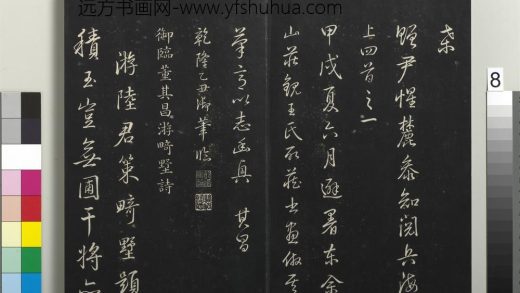 远方书画网-www.yfshuhua.com
8
赠尹惺麓参知阅兵海
上四首之一
甲戌夏六月避暑东余
山庄观王氏所藏书画仿
笔意以志幽真 其昌
乾隆乙丑御笔临
御临董其昌游畸墅诗
游陆君策畸墅题
积玉岂无圃干将